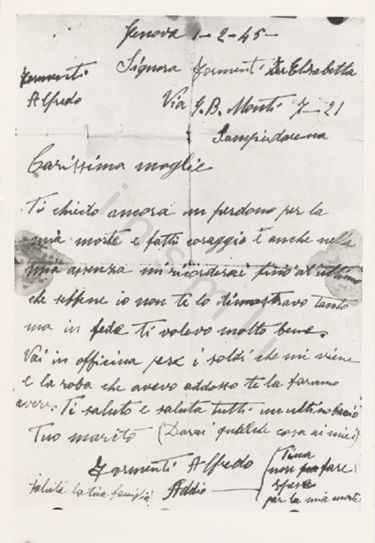 Genova 1-2-45-
Formenti Signora Formenti Elisabetta
Alfredo Via G.B. Monti 21
Sampierdarena
Carissima moglie
Ti chiedo ancora un perdono per la
mia morte e fatti coraggio e anche nella
mia assenza mi ricorderai fino al ultimo
che sebbene io non te lo dimostravo tanto
ma in fede ti volevo molto bene.
Vai in officina per i soldi che mi viene
e la roba che avevo addosso te la faranno
avere. Ti saluto e saluta tutti un ultimo bacio
Tuo marito (Darai qualche cosa ai miei)
Formenti Alfredo
saluta la tua famiglia Addio
Tina
non fare
spese
per la mia morte